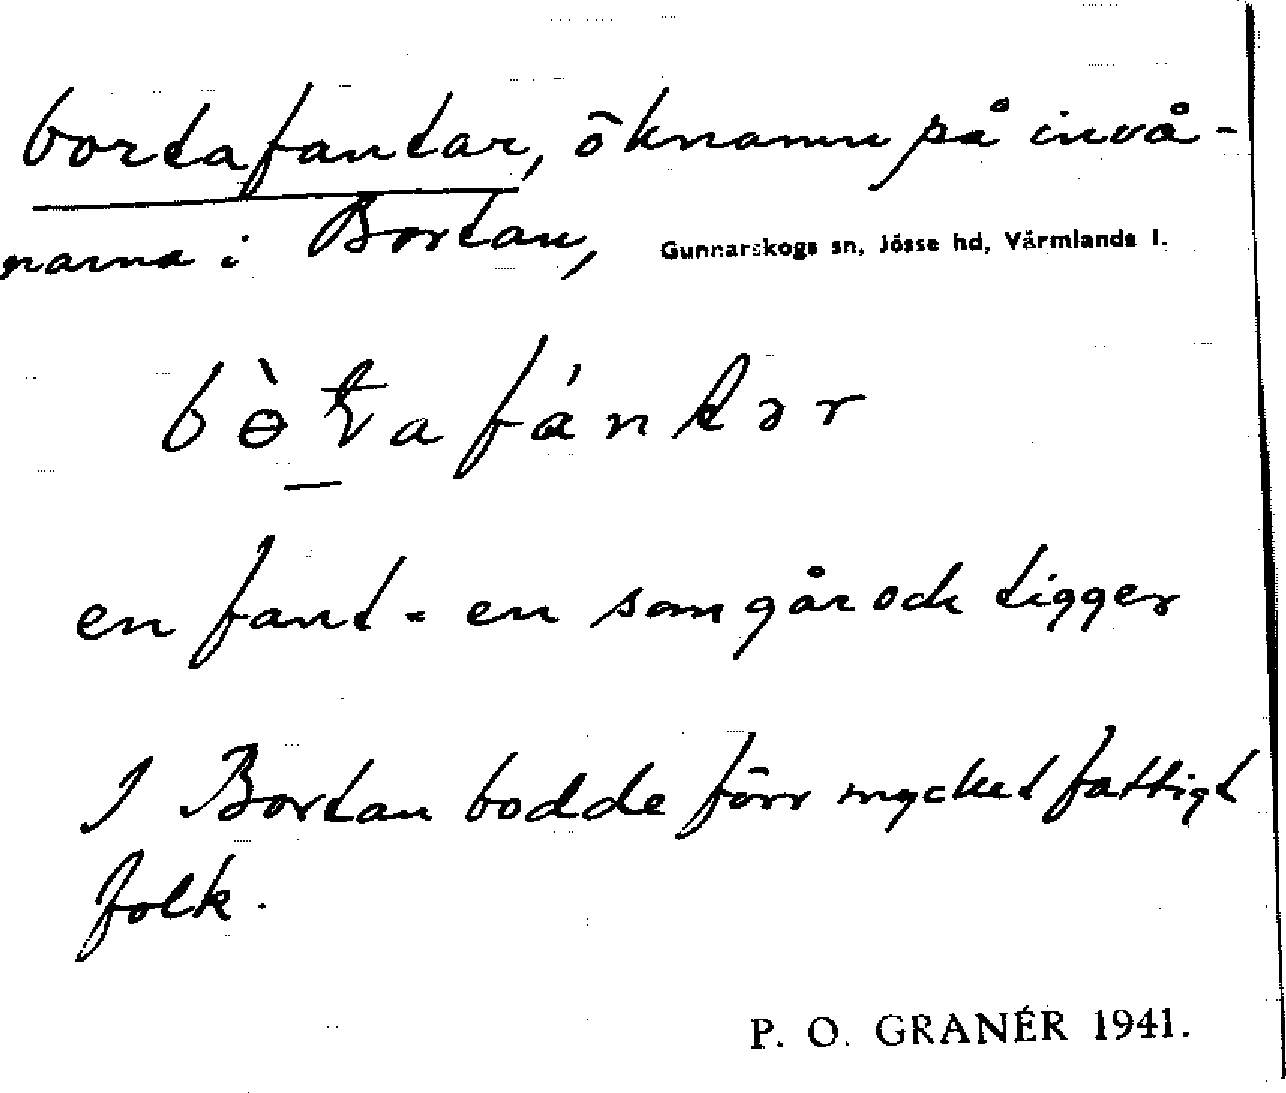 bortafantar, öknamn på invå-
narna i Bortan, Gunnarskogs sn, Jösse hd, Värmlands l.
en fant = en som går och tigger
I Bortan bodde förr mycket fattigt
folk.
P. O. GRANÉR 1941.